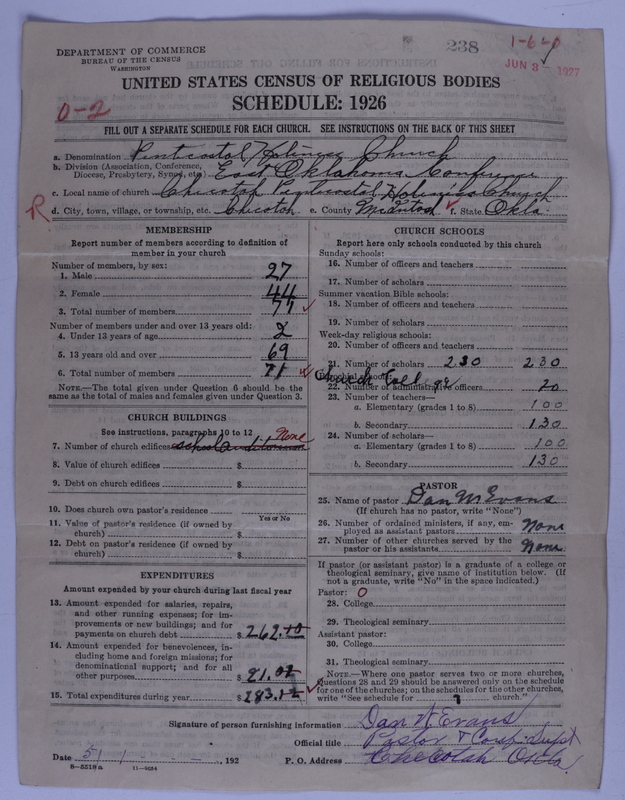 238
1-6-0
JUN 3 1927
DEPARTMENT OF COMMERCE
BUREAU OF THE CENSUS
WASHINGTON
UNITED STATES CENSUS OF RELIGIOUS BODIES
SCHEDULE: 1926
0-2
FILL OUT A SEPARATE SCHEDULE FOR EACH CHURCH. SEE INSTRUCTIONS ON THE BACK OF THIS SHEET
a. Denomination Pentcostal Holiness Church
b. Division (Association, Conference, Diocese, Presbytery, Synod, etc.) East Oklahoma Conference
c. Local name of church Checotah Pentcostal Holiness Church
R d. City, town, village, or township, etc. Checotah e. County McIntosh f. State Okla.
MEMBERSHIP
Report number of members according to definition of
member in your church
Number of members, by sex:
1. Male 27
2. Female 44
3. Total number of members 71
Number of members under and over 13 years old:
4. Under 13 years of age 2
5. 13 years old and over 69
6. Total number of members 71
NOTE.—The total given under Question 6 should be the
same as the total of males and females given under Question 3.
CHURCH BUILDINGS
See instructions, paragraphs 10 to 12
7. Number of church edifices school auditorium None
8. Value of church edifices $
9. Debt on church edifices $
10. Does church own pastor's residence
Yes or No
11. Value of pastor's residence (if owned by
church) $
12. Debt on pastor's residence (if owned by
church) $
EXPENDITURES
Amount expended by your church during last fiscal year
13. Amount expended for salaries, repairs,
and other running expenses; for im-
provements or new buildings; and for
payments on church debt $ 262.10
14. Amount expended for benevolences, in-
cluding home and foreign missions; for
denominational support; and for all
other purposes $ 21.02
15. Total expenditures during year $ 283.12
CHURCH SCHOOLS
Report here only schools conducted by this church
Sunday schools:
16. Number of officers and teachers
17. Number of scholars
Summer vacation Bible schools:
18. Number of officers and teachers
19. Number of scholars
Week-day religious schools:
20. Number of officers and teachers
21. Number of scholars 230 230
Church
22. Number of administrative officers 20
23. Number of teachers—
a. Elementary (grades 1 to 8) 100
b. Secondary 130
24. Number of scholars—
a. Elementary (grades 1 to 8) 100
b. Secondary 130
PASTOR
25. Name of pastor Dan W Evans
(If church has no pastor, write "None")
26. Number of ordained ministers, if any, em-
ployed as assistant pastors None
27. Number of other churches served by the
pastor or his assistants None
If pastor (or assistant pastor) is a graduate of a college or
theological seminary, give name of institution below. (If
not a graduate, write "No" in the space indicated.)
Pastor: O
28. College
29. Theological seminary
Assistant pastor:
30. College
31. Theological seminary
NOTE.—Where one pastor serves two or more churches,
Questions 28 and 29 should be answered only on the schedule
for one of the churches; on the schedules for the other churches,
write "See schedule for ? church."
Signature of person furnishing information Dan W Evans
Official title Pastor & Conf. Supt
Date 5 1 , 192 P. O. Address Checotah Okla.
8-5518a 11-9034